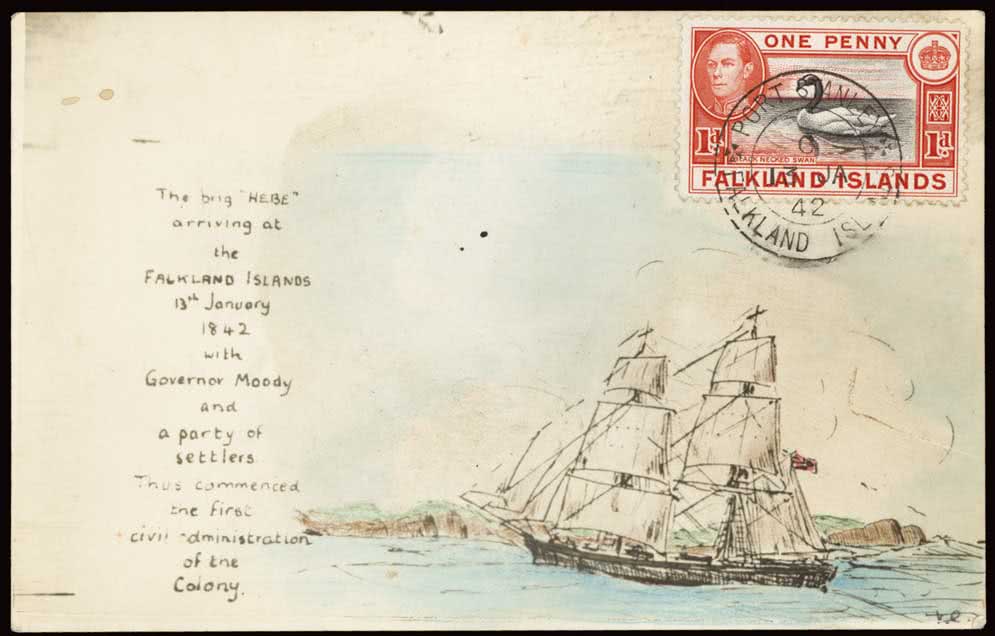 The brig "HEBE"
arriving at
the
FALKLAND ISLANDS
13th January
1842
with
Governor Moody
and
a party of
settlers
Thus commenced
the first
civil administration
of the
Colony.
ONE PENNY
1d
1d
BLACK NECKED SWAN
FALKLAND ISLANDS
PORT STANLEY
13 JA
42
FALKLAND ISL